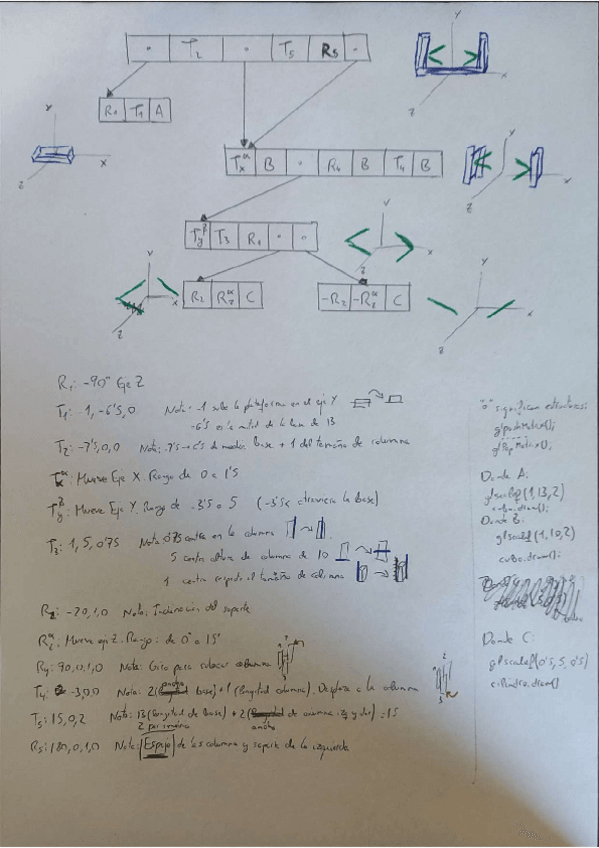 T2 T5 R5
Y
X
Z
R1 T1 A
Y
X
Z
Tx^α B R4 B T4 B
Y
X
Z
Ty^β T3 R1
Y
X
Z
R2 Rz^α C
-R2 -Rz^α C
Y
X
Z
Y
X
Z
R1: -90° Eje Z
T1: -1, -6'5, 0 Nota: -1 sube la plataforma en el eje Y
-6'5 es la mitad de la base de 13
T2: -7'5, 0, 0 Nota: base + 1 del tamaño de columna
Tx^α: Mueve Eje X. Rango de 0 a 1'5
Ty^β: Mueve Eje Y. Rango de -3'5 a 5 (-3'5 atraviesa la base)
T3: 1, 5, 0'75 Nota: 0'75 centra en la columna
5 centra altura de columna de 10
1 centra respecto al tamaño de columna
R2: -20, 1, 0 Nota: Inclinación del soporte
Rz^α: Mueve eje Z. Rango: de 0° a 15°
R4: 90, 0, 1, 0 Nota: Giro para colocar columna
T4: -3, 0, 0 Nota: 2( ancho base) + 1 (longitud columna). Desplaza a la columna
T5: 15, 0, 2 Nota: 13 (longitud de base) + 2 ( ancho de columna izq y der) = 15
R5: 180, 0, 1, 0 Nota: Espejo de las columna y soporte de la izquierda
"o" significan estructuras:
glpushMatrix();
glPopMatrix();
Donde A:
glscalef(1, 13, 2)
cubo.draw();
Donde B:
glscalef(1, 10, 2)
cubo.draw();
Donde C:
glscalef(0'5, 5, 0'5)
cilindro.draw()